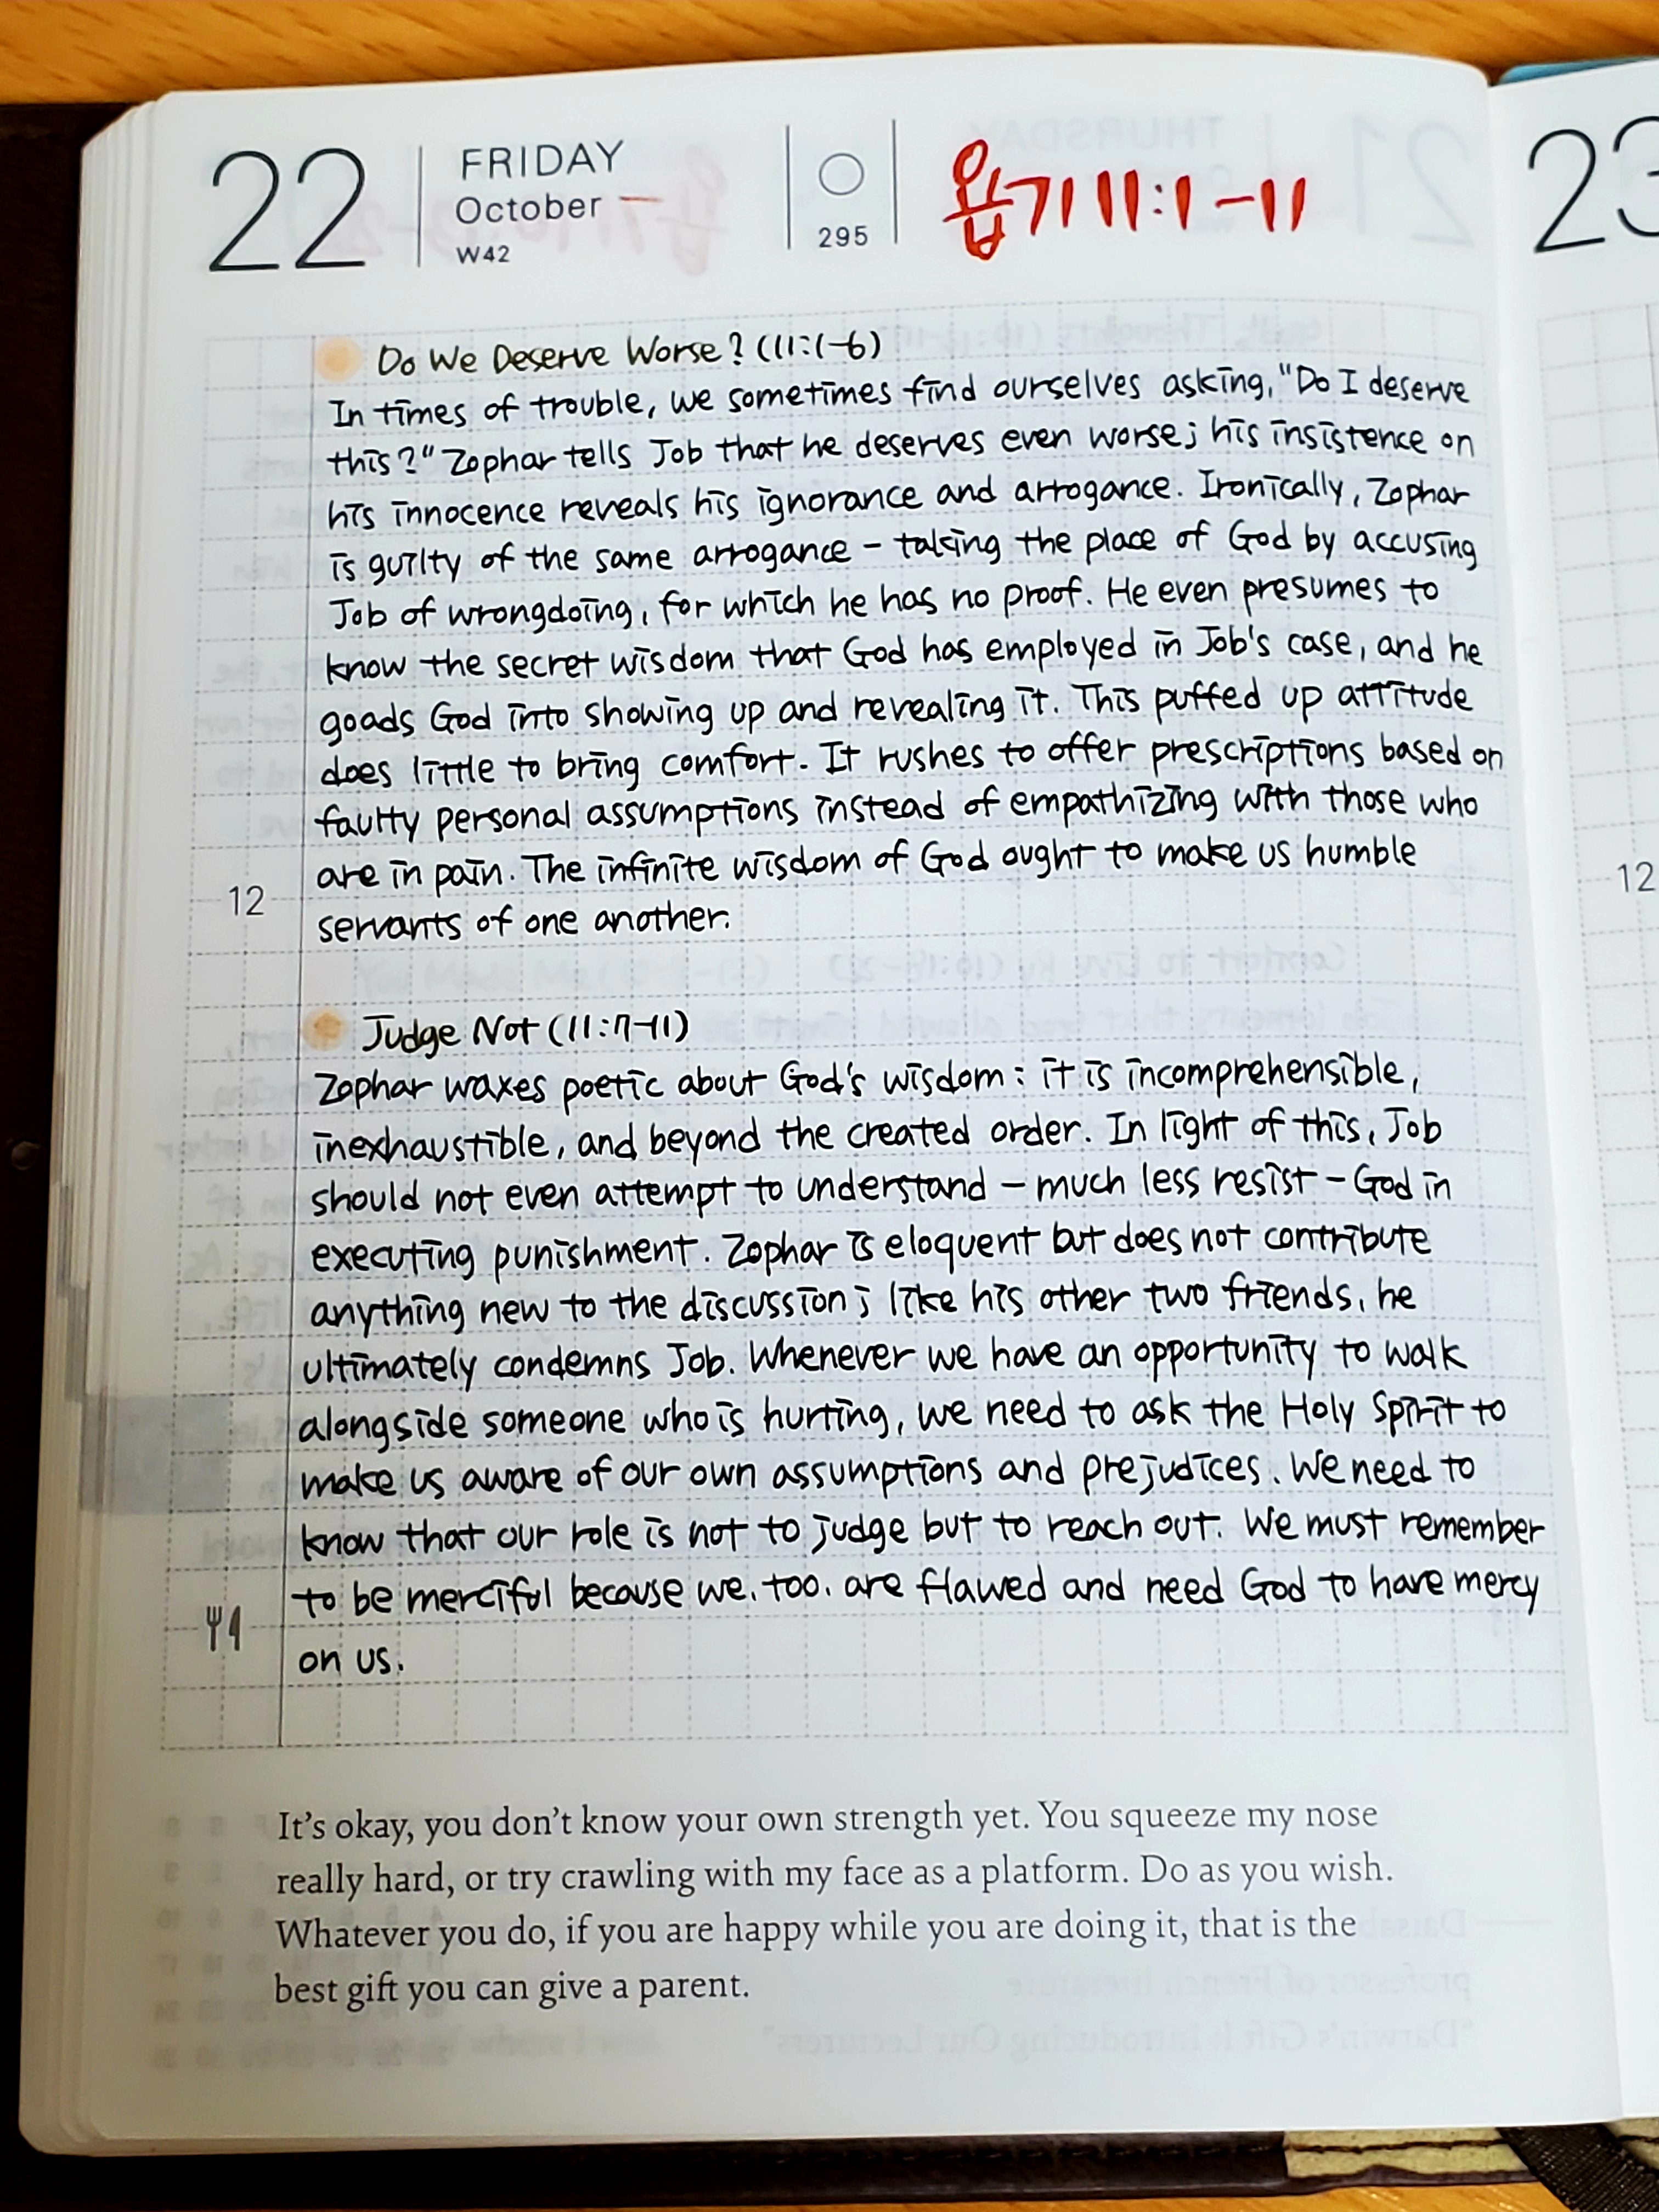 22
FRIDAY
October
W42
295
욥기 11:1-11
23
Do We Deserve Worse? (11:1-6)
In times of trouble, we sometimes find ourselves asking, "Do I deserve
this?" Zophar tells Job that he deserves even worse; his insistence on
his innocence reveals his ignorance and arrogance. Ironically, Zophar
is guilty of the same arrogance - taking the place of God by accusing
Job of wrongdoing, for which he has no proof. He even presumes to
know the secret wisdom that God has employed in Job's case, and he
goads God into showing up and revealing it. This puffed up attitude
does little to bring comfort. It rushes to offer prescriptions based on
faulty personal assumptions instead of empathizing with those who
are in pain. The infinite wisdom of God ought to make us humble
12
12
servants of one another.
Judge Not (11:7-11)
Zophar waxes poetic about God's wisdom: it is incomprehensible,
inexhaustible, and beyond the created order. In light of this, Job
should not even attempt to understand - much less resist - God in
executing punishment. Zophar is eloquent but does not contribute
anything new to the discussion; like his other two friends, he
ultimately condemns Job. Whenever we have an opportunity to walk
alongside someone who is hurting, we need to ask the Holy Spirit to
make us aware of our own assumptions and prejudices. We need to
know that our role is not to judge but to reach out. We must remember
to be merciful because we, too, are flawed and need God to have mercy
on us.
It's okay, you don't know your own strength yet. You squeeze my nose
really hard, or try crawling with my face as a platform. Do as you wish.
Whatever you do, if you are happy while you are doing it, that is the
best gift you can give a parent.